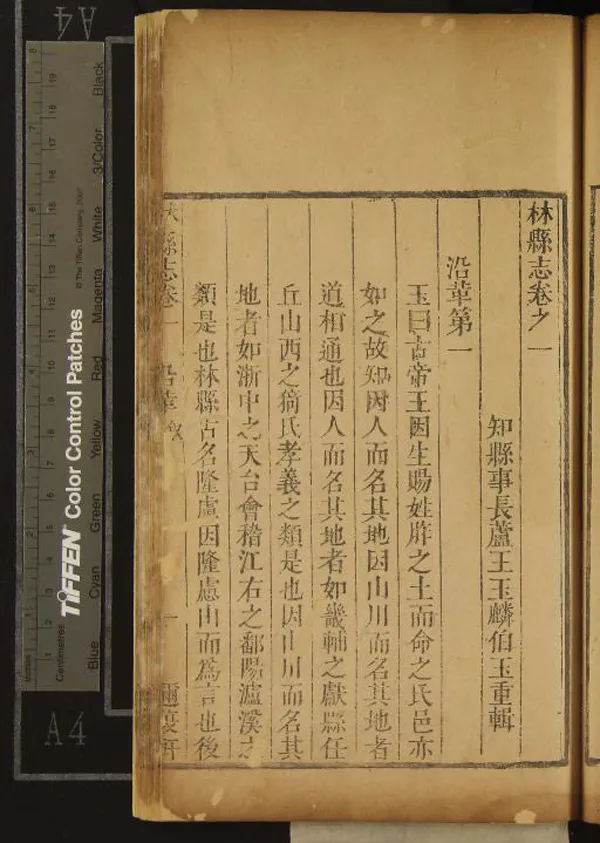 林縣志卷之一
知縣事長蘆王玉麟伯玉重輯
沿革第一
玉曰古帝王因生賜姓胙之土而命之氏邑亦
如之故知因人而名其地因山川而名其地者
道相通也因人而名其地者如畿輔之獻縣任
丘山西之猗氏孝義之類是也因山川而名其
地者如浙中之天台會稽江右之鄱陽瀘溪之
類是也林縣古名隆慮因隆慮山而爲言也後
林縣志卷一 沿革 一
TIFFEN Color Control Patches
© The Tiffen Company, 2007
Blue Cyan Green Yellow Red Magenta White 3/Color Black
Inches 1 2 3 4 5 6 7 8
Centimetres 1 2 3 4 5 6 7 8 9 10 11 12 13 14 15 16 17 18 19
A4
A4